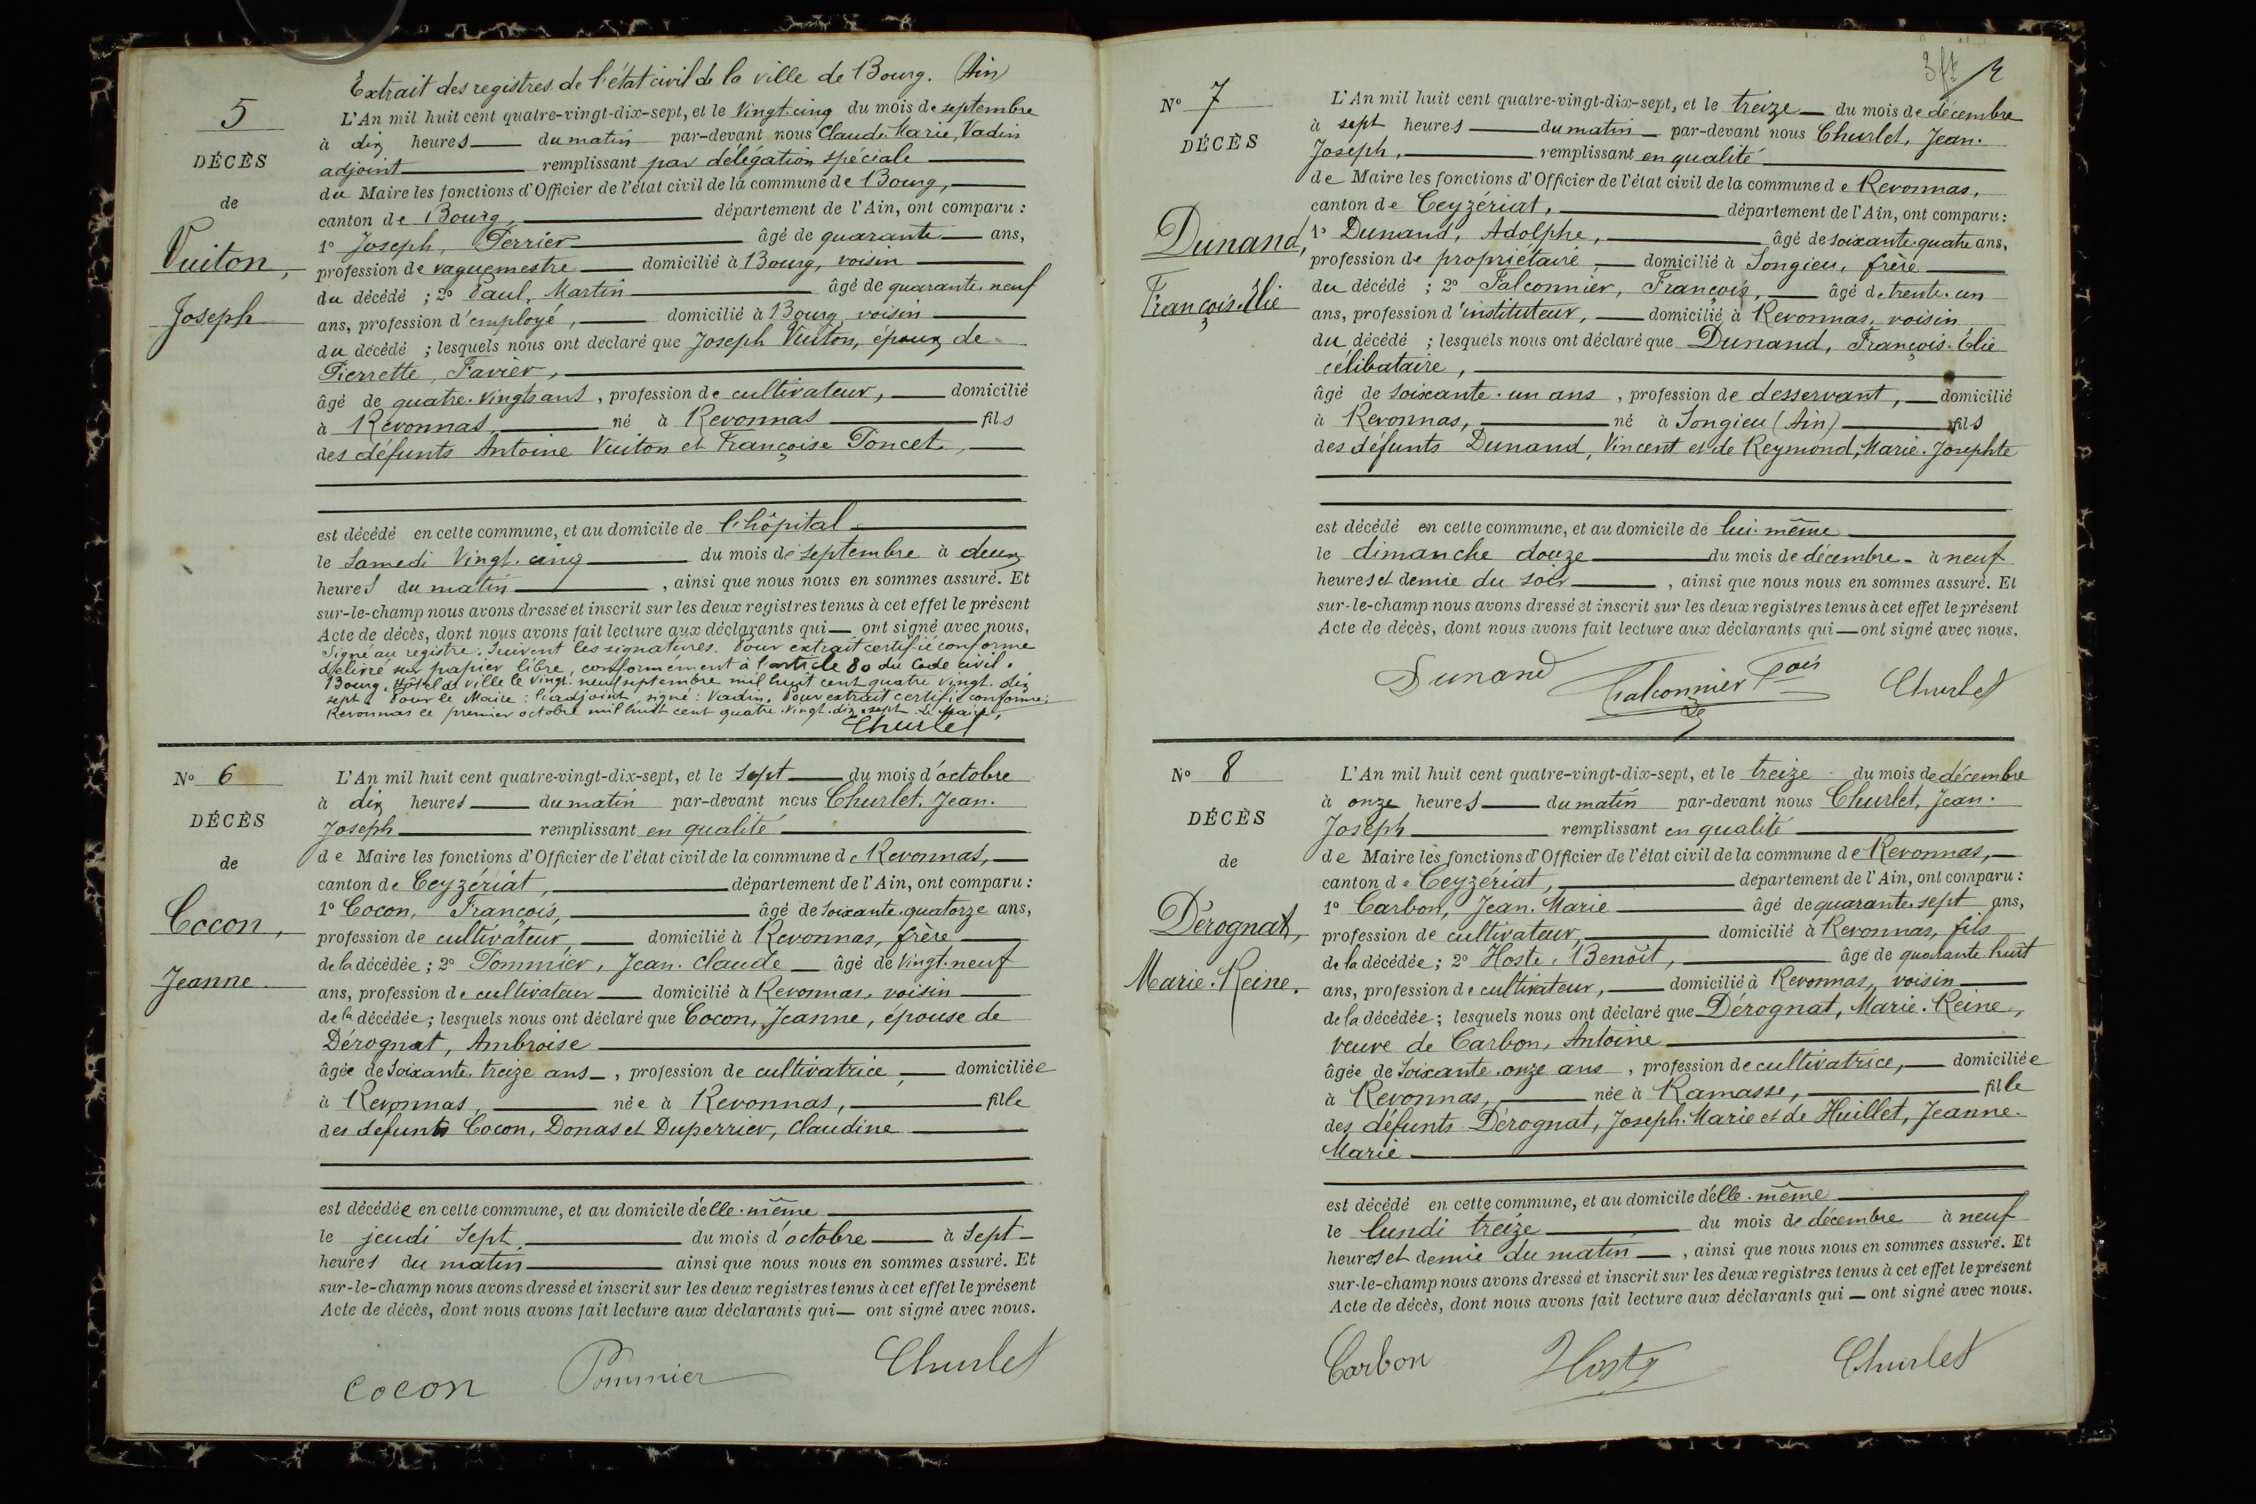 Extrait des registres de l'état civil de la ville de Bourg. (Ain)
5
DÉCÈS
de
Vuiton,
Joseph
L'An mil huit cent quatre-vingt-dix-sept, et le Vingt-cinq du mois de septembre
à dix heures du matin par-devant nous Claude Marie, Vadin
adjoint remplissant par délégation spéciale
du Maire les fonctions d'Officier de l'état civil de la commune de Bourg,
canton de Bourg, département de l'Ain, ont comparu :
1° Joseph, Perrier âgé de quarante ans,
profession de vaguemestre domicilié à Bourg, voisin
du décédé ; 2° Paul, Martin âgé de quarante-neuf
ans, profession d'employé, domicilié à Bourg voisin
du décédé ; lesquels nous ont déclaré que Joseph Vuiton, époux de
Pierrette, Favier,
âgé de quatre-vingts ans, profession de cultivateur, domicilié
à Revonnas, né à Revonnas fils
des défunts Antoine Vuiton et Françoise Poncet,
est décédé en cette commune, et au domicile de l'hôpital
le Samedi Vingt-cinq du mois de septembre à deux
heures du matin, ainsi que nous nous en sommes assuré. Et
sur-le-champ nous avons dressé et inscrit sur les deux registres tenus à cet effet le présent
Acte de décès, dont nous avons fait lecture aux déclarants qui ont signé avec nous,
Signé au registre. Suivent les signatures. Pour extrait certifié conforme
délivré sur papier libre, conformément à l'article 80 du Code civil.
Bourg, Hôtel de Ville le Vingt-neuf septembre mil huit cent quatre vingt-dix
sept. Pour le Maire : l'adjoint signé : Vadin. Pour extrait certifié conforme :
Revonnas ce premier octobre mil huit cent quatre-vingt-dix-sept Le Maire,
Churlet
N° 6
DÉCÈS
de
Cocon,
Jeanne
L'An mil huit cent quatre-vingt-dix-sept, et le sept du mois d'octobre
à dix heures du matin par-devant nous Churlet, Jean-
Joseph remplissant en qualité
de Maire les fonctions d'Officier de l'état civil de la commune de Revonnas,
canton de Ceyzériat, département de l'Ain, ont comparu :
1° Cocon, François, âgé de soixante-quatorze ans,
profession de cultivateur, domicilié à Revonnas, frère
de la décédée ; 2° Pommier, Jean-Claude âgé de Vingt-neuf
ans, profession de cultivateur domicilié à Revonnas, voisin
de la décédée ; lesquels nous ont déclaré que Cocon, Jeanne, épouse de
Dérognat, Ambroise
âgée de Soixante-treize ans, profession de cultivatrice, domiciliée
à Revonnas, née à Revonnas, fille
des défunts Cocon, Donas et Duperrier, Claudine
est décédée en cette commune, et au domicile d'elle-même
le jeudi sept du mois d'octobre à sept
heures du matin ainsi que nous nous en sommes assuré. Et
sur-le-champ nous avons dressé et inscrit sur les deux registres tenus à cet effet le présent
Acte de décès, dont nous avons fait lecture aux déclarants qui ont signé avec nous.
cocon Pommier Churlet
N° 7
DÉCÈS
Dunand,
François-Élie
L'An mil huit cent quatre-vingt-dix-sept, et le treize du mois de décembre
à sept heures du matin par-devant nous Churlet, Jean-
Joseph, remplissant en qualité
de Maire les fonctions d'Officier de l'état civil de la commune de Revonnas,
canton de Ceyzériat, département de l'Ain, ont comparu :
1° Dunand, Adolphe, âgé de soixante-quatre ans,
profession de propriétaire, domicilié à Songieu, frère
du décédé ; 2° Falconnier, François, âgé de trente-un
ans, profession d'instituteur, domicilié à Revonnas, voisin
du décédé ; lesquels nous ont déclaré que Dunand, François-Élie
célibataire,
âgé de soixante-un ans, profession de desservant, domicilié
à Revonnas, né à Songieu (Ain) fils
des défunts Dunand, Vincent et de Reymond, Marie-Josephte
est décédé en cette commune, et au domicile de lui-même
le dimanche douze du mois de décembre à neuf
heures et demie du soir, ainsi que nous nous en sommes assuré. Et
sur-le-champ nous avons dressé et inscrit sur les deux registres tenus à cet effet le présent
Acte de décès, dont nous avons fait lecture aux déclarants qui ont signé avec nous.
Dunand Falconnier Fçois Churlet
N° 8
DÉCÈS
de
Dérognat,
Marie-Reine.
L'An mil huit cent quatre-vingt-dix-sept, et le treize du mois de décembre
à onze heures du matin par-devant nous Churlet, Jean-
Joseph remplissant en qualité
de Maire les fonctions d'Officier de l'état civil de la commune de Revonnas,
canton de Ceyzériat, département de l'Ain, ont comparu :
1° Carbon, Jean-Marie âgé de quarante-sept ans,
profession de cultivateur, domicilié à Revonnas, fils
de la décédée ; 2° Hoste, Benoît, âgé de quarante-huit
ans, profession de cultivateur, domicilié à Revonnas, voisin
de la décédée ; lesquels nous ont déclaré que Dérognat, Marie-Reine,
veuve de Carbon, Antoine
âgée de Soixante-onze ans, profession de cultivatrice, domiciliée
à Revonnas, née à Ramasse, fille
des défunts Dérognat, Joseph-Marie et de Huillet, Jeanne-
Marie
est décédé en cette commune, et au domicile d'elle-même
le lundi treize du mois de décembre à neuf
heures et demie du matin, ainsi que nous nous en sommes assuré. Et
sur-le-champ nous avons dressé et inscrit sur les deux registres tenus à cet effet le présent
Acte de décès, dont nous avons fait lecture aux déclarants qui ont signé avec nous.
Carbon Hoste Churlet